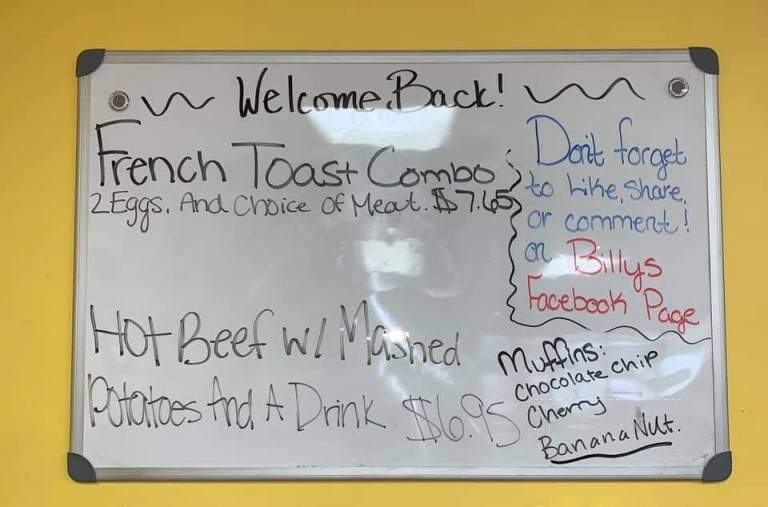 Welcome Back!
French Toast Combo
2 Eggs. And Choice Of Meat. $7.65
Don't forget
to Like, Share,
or comment!
on Billys
Facebook Page
Hot Beef w/ Mashed
Potatoes And A Drink $6.95
Muffins:
Chocolate chip
Cherry
Banana Nut.